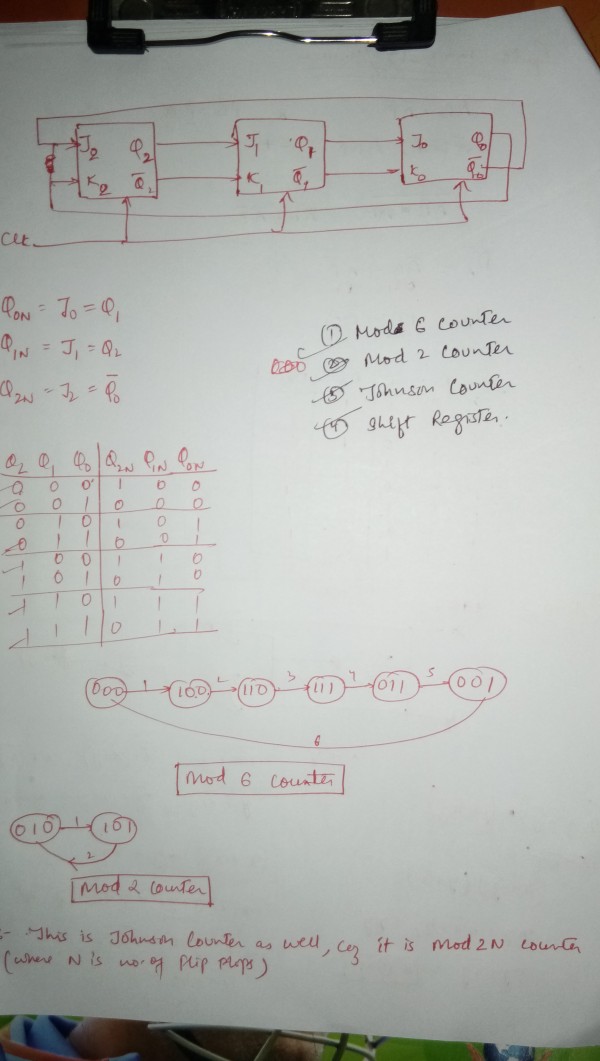 J2 Q2 J1 Q1 J0 Q0
K2 Q̅1 K1 Q̅1 K0 Q̅0
Clk
Q0N = J0 = Q1
Q1N = J1 = Q2
Q2N = J2 = Q̅0
① Mod 6 counter
② Mod 2 counter
③ Johnson Counter
④ Shift Register.
Q2 Q1 Q0 Q2N Q1N Q0N
0 0 0 1 0 0
0 0 1 0 0 0
0 1 0 1 0 1
0 1 1 0 0 1
1 0 0 1 1 0
1 0 1 0 1 0
1 1 0 1 1 1
1 1 1 0 1 1
000 1 100 2 110 3 111 4 011 5 001
6
Mod 6 counter
010 1 101
2
Mod 2 counter
:- This is Johnson Counter as well, coz it is Mod 2N counter
(where N is no. of flip flops)